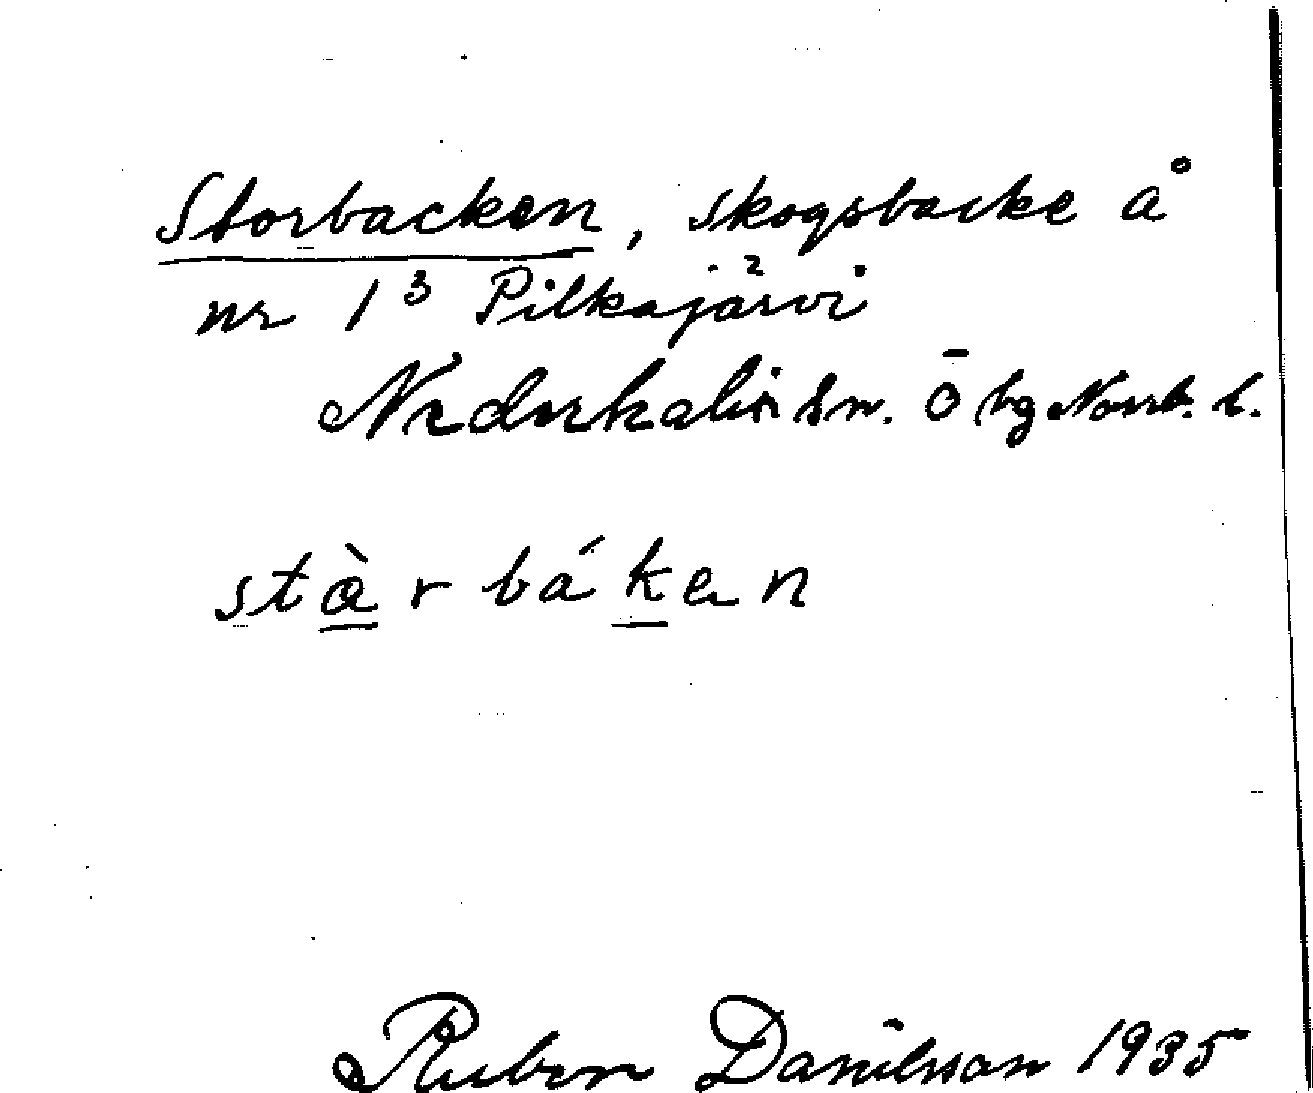 Storbacken, skogsbacke å
nr 1³ Pilkajärvi
Nederkalix sn. Ö bg Norrb. l.
stàrbáken
Ruben Danielsson 1935